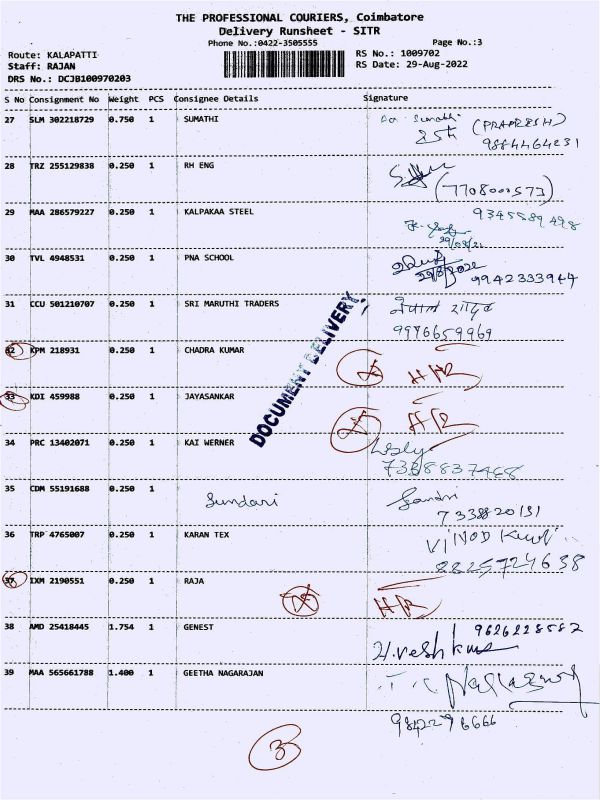 THE PROFESSIONAL COURIERS, Coimbatore
Delivery Runsheet - SITR
Phone No.:0422-3505555
Page No.:3
Route: KALAPATTI
RS No.: 1009702
Staff: RAJAN
RS Date: 29-Aug-2022
DRS No.: DCJB100970203
S No Consignment No Weight PCS Consignee Details Signature
27 SLM 302218729 0.750 1 SUMATHI
(PRAPRESH)
9884464231
28 TRZ 255129838 0.250 1 RH ENG
(7708000573)
29 MAA 286579227 0.250 1 KALPAKAA STEEL
9345589498
30 TVL 4948531 0.250 1 PNA SCHOOL
9942333944
31 CCU 501210707 0.250 1 SRI MARUTHI TRADERS
नेपाल यादव
9976659969
DOCUMENT DELIVERY
32 KPM 218931 0.250 1 CHADRA KUMAR
HR
33 KDI 459988 0.250 1 JAYASANKAR
HR
34 PRC 13402071 0.250 1 KAI WERNER
7338837468
35 CDM 55191688 0.250 1 Sundari
7338820131
36 TRP 4765007 0.250 1 KARAN TEX
VINOD
8825724638
37 IXM 2190551 0.250 1 RAJA
HR
38 AMD 25418445 1.754 1 GENEST
9626228582
39 MAA 565661788 1.400 1 GEETHA NAGARAJAN
9842296666
3